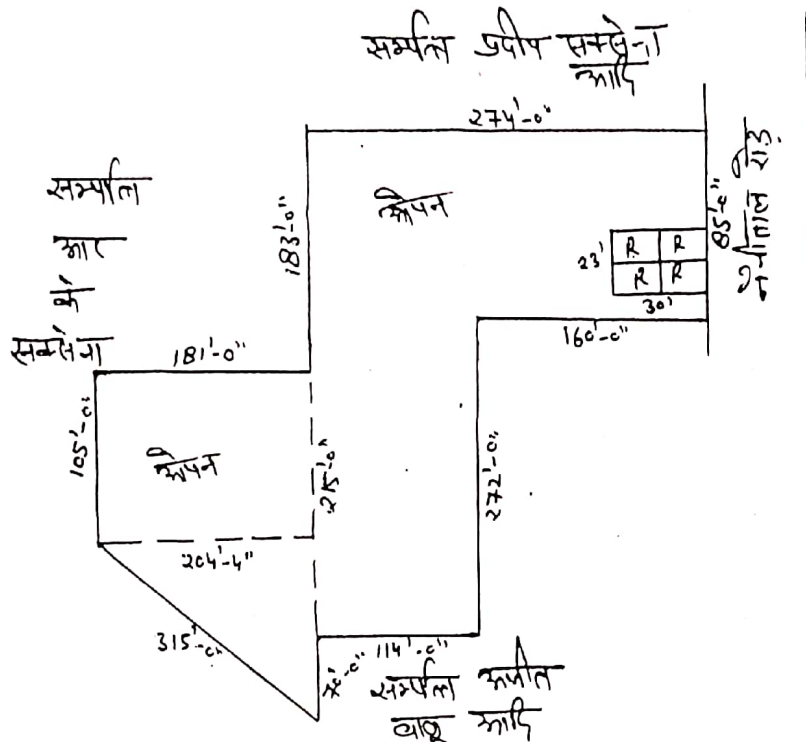 सम्पत्ति प्रदीप सक्सेना
आदि
274'-0"
नैनीताल रोड़
85'-0"
सम्पत्ति
आर
के
सक्सेना
183'-0"
ओपन
23'
R R
R R
30'
160'-0"
181'-0"
105'-0"
ओपन
215'-0"
272'-0"
204'-4"
315'-0"
70'-0"
114'-0"
सम्पत्ति अजीत
बाबू आदि